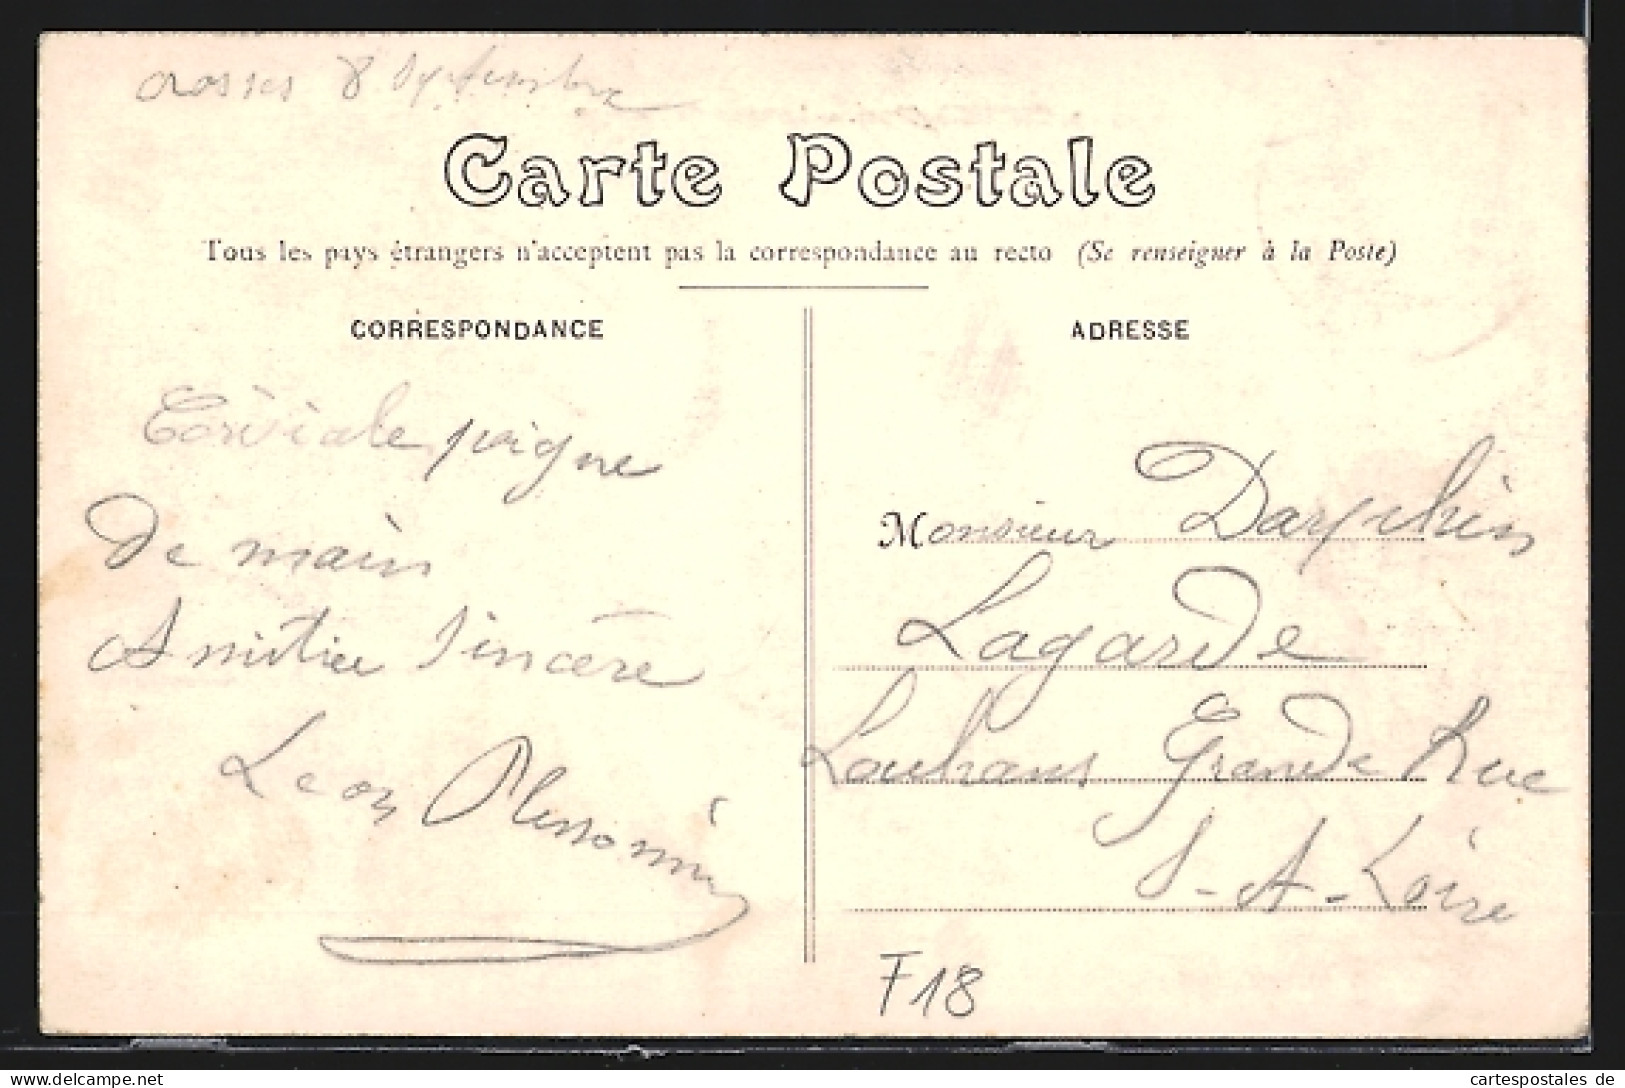 8 Septembre
Carte Postale
Tous les pays étrangers n'acceptent pas la correspondance au recto (Se renseigner à la Poste)
CORRESPONDANCE
ADRESSE
Cordiale poigne
de main
Amitiée Sincère
Leon
Monsieur
Lagarde
Louhans Grande Rue
S-A-Loire
F18
www.cartespostales.de
cartespostales de